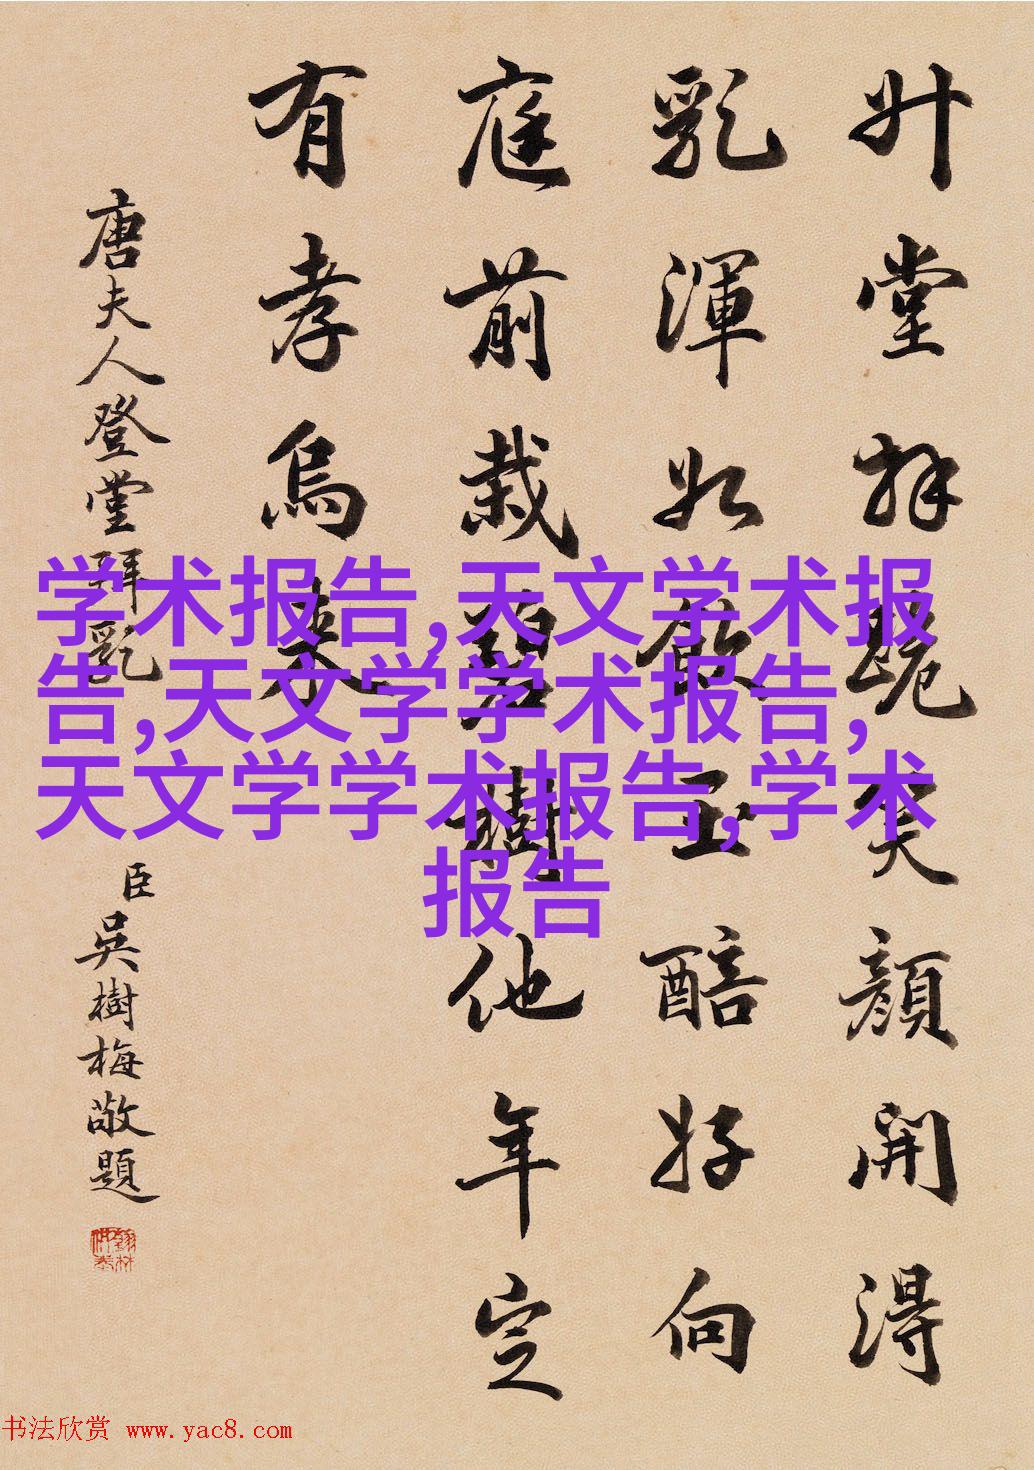 升堂拜跪笑顏開得
乳渾如飲玉醅好向
庭前栽碧樹他年定
有孝烏來
唐夫人登堂拜乳
臣吳樹梅敬題
学术报告,天文学术报
告,天文学学术报告,
天文学学术报告,学术
报告
书法欣赏 www.yac8.com